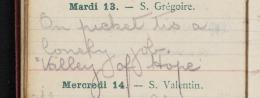 Mardi 13. — S. Grégoire.
On picket tis a
lonely job.
"Valley of Hope"
Mercredi 14. — S. Valentin.